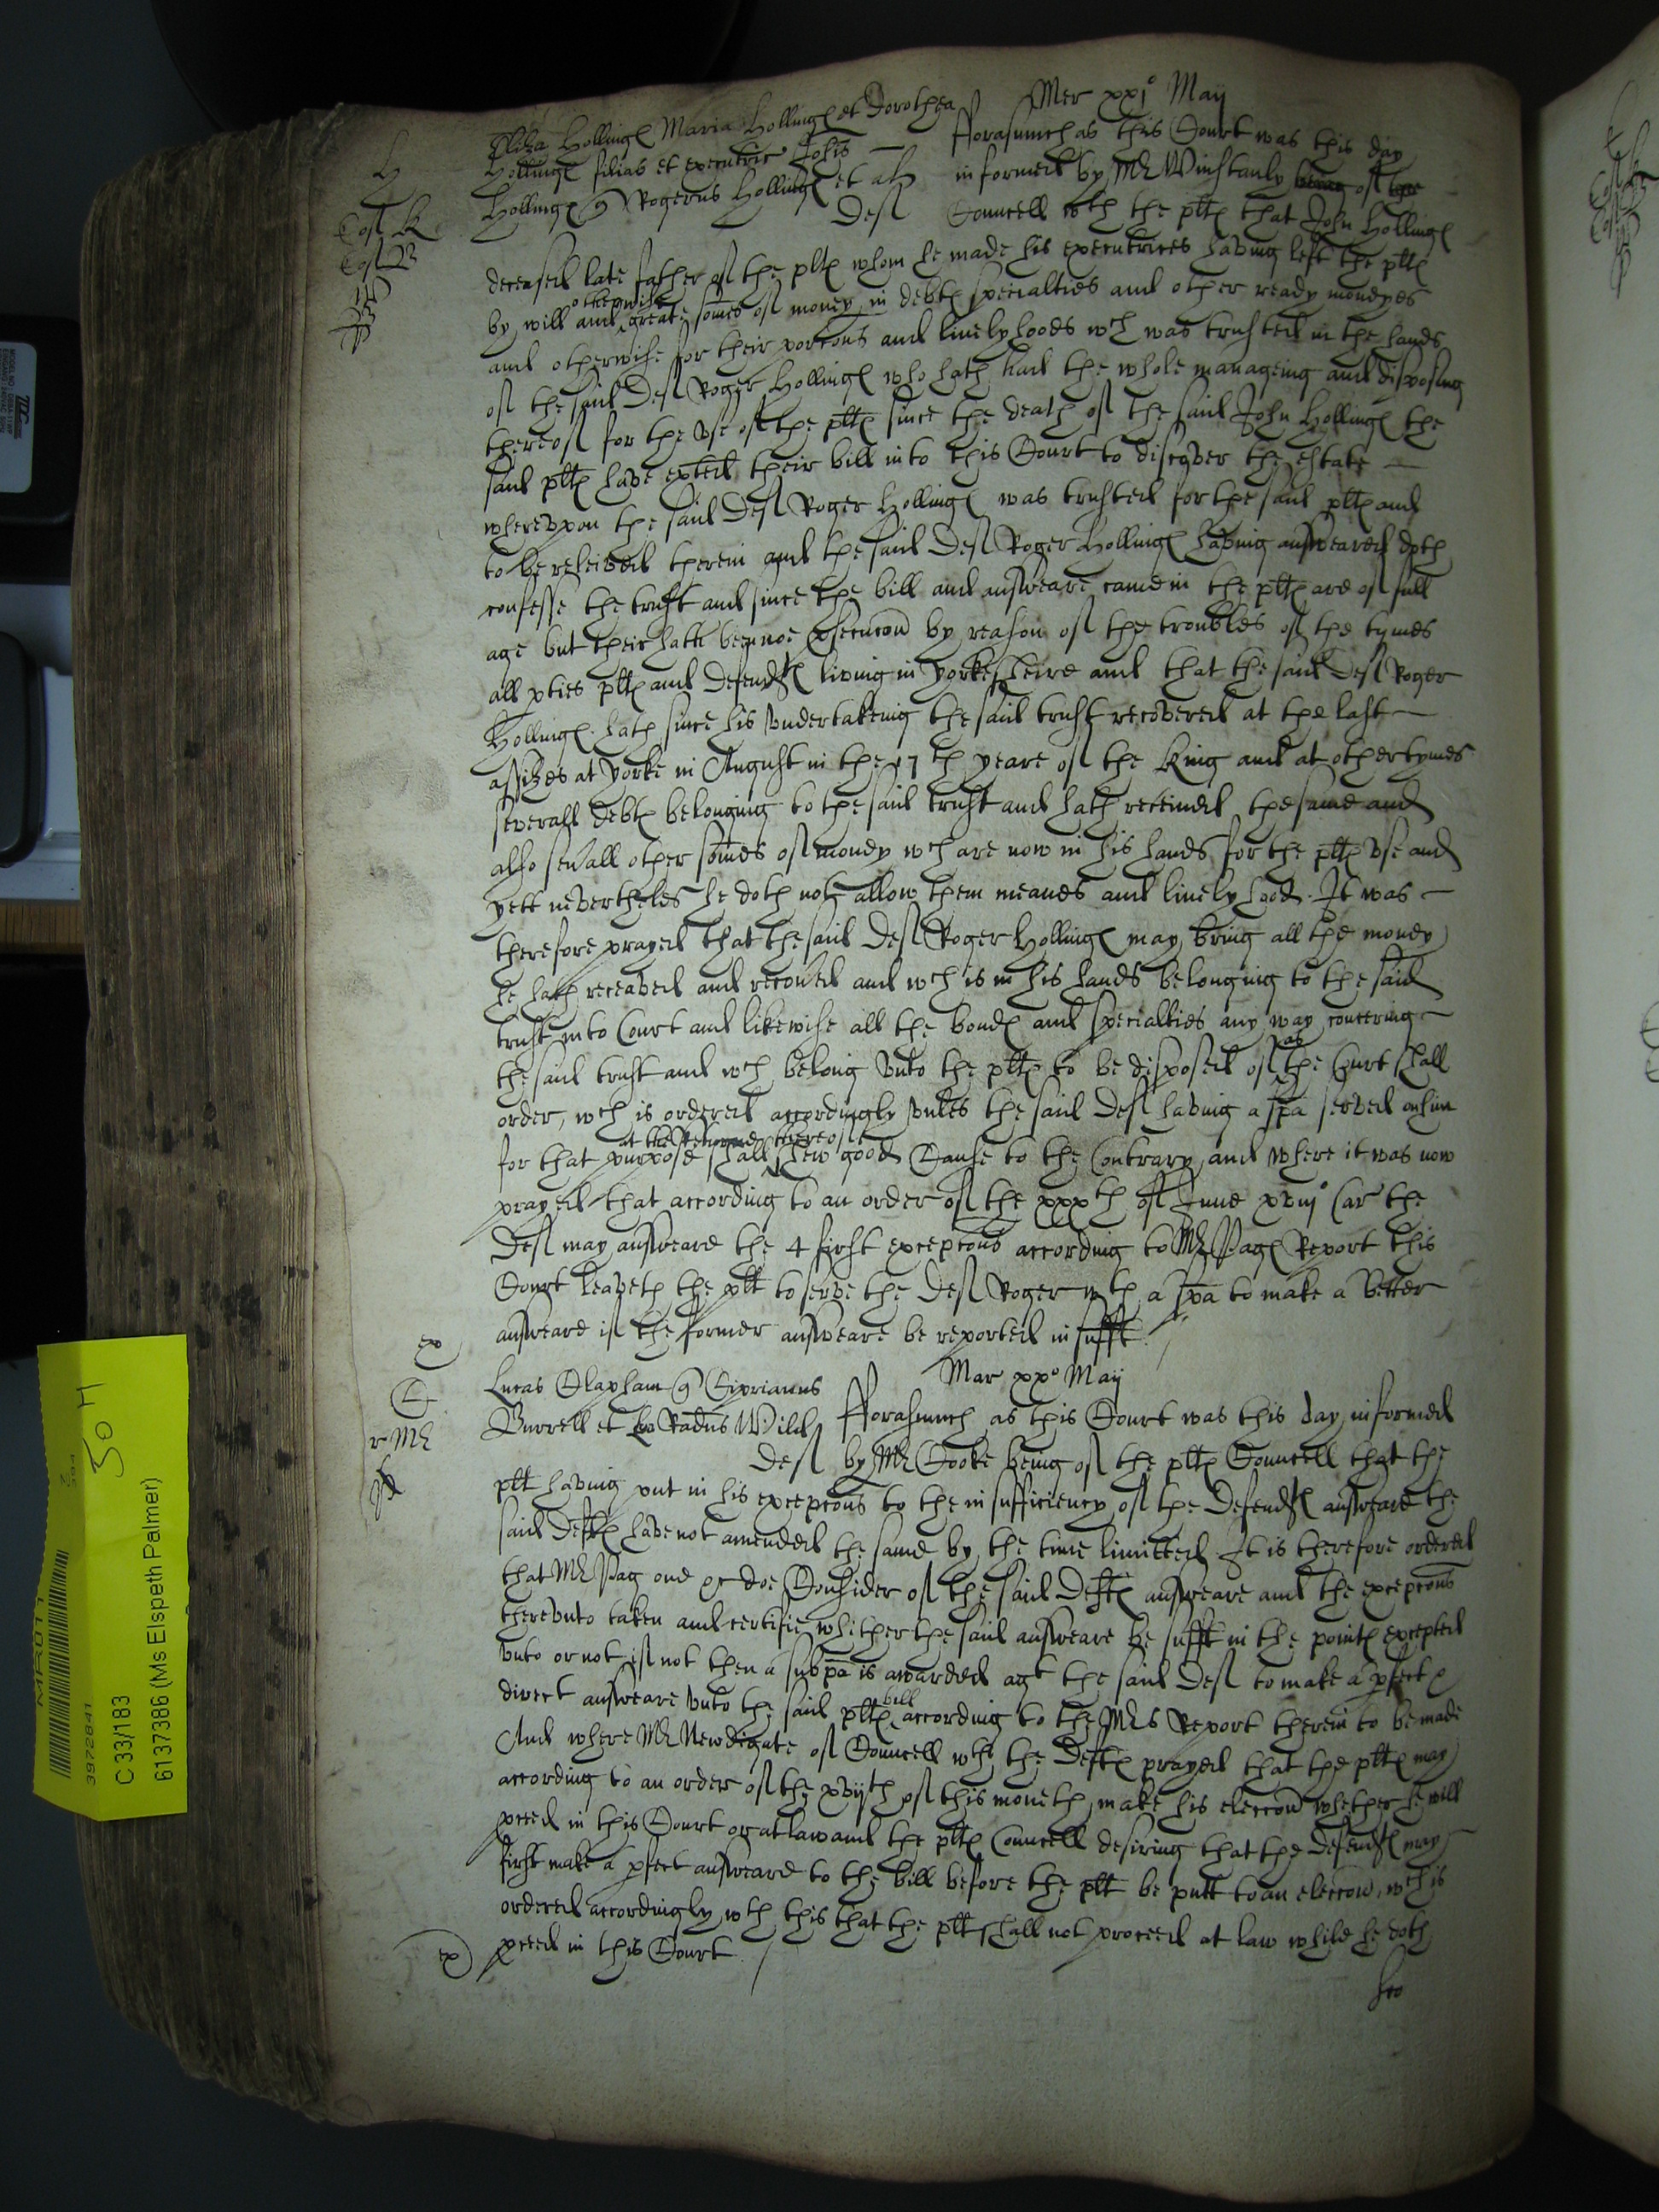 Mer xxj° Maij
Eliza Hollings Maria Hollings et Dorothea
Hollings filias et executric Johis
Hollings Rogerus Hollings et al
Def
fforasmuch as this Court was this day
informed by Mr Winstanly being of the
Councell wth the pltes that John Hollings
deceased late father of the pltes whom he made his executrices having left the pltes
by will and otherwise great somes of money in debtes specialties and other ready moneyes
and otherwise for their porcons and livelyhoods wch was trusted in the hands
of the said Def Roger Hollings who hath had the whole manageing and disposing
thereof for the vse of the pltes since the death of the said John Hollings the
said pltes have exhted their bill into this Court to discover the estate
wherevpon the said Def Roger Hollings was trusted for the said pltes and
to be releived therein and the said Def Roger Hollings having answeared doth
confesse the trust and since the bill and answeare came in the pltes are of full
age but their hath ben noe psecucon by reason of the troubles of the tymes
all pties pltes and Defendtes living in Yorkesheire and that the said Def Roger
Hollings hath since his vndertakeing the said trust recovered at the last
assizes at Yorke in August in the 17th yeare of the King and at other tymes
severall debtes belonging to the said trust and hath received the same and
also seuall other somes of money wch are now in his hands for the pltes vse and
yett nevertheles he doth not allow them meanes and livelyhood. It was
therefore prayed that the said Def Roger Hollings may bring all the money
he hath receaved and recoued and wch is in his hands belonging to the said
trust into Court and likewise all the bondes and specialties any way concerning
the said trust and wch belong vnto the pltes to be disposed of as the Court shall
order, wch is ordered accordingly vnles the said Def having a spa served on him
for that purpose shall at the returne thereof shew good Cause to the Contrary, and where it was now
prayed that according to an order of the xxxth of June xviij° Car the
Def may answeare the 4 first excepcons according to Mr Pages Report this
Court leaveth the plt to serve the Def Roger wth a spa to make a better
answeare if the former answeare be reported in sufft.
Mar xx° Maij
Lucas Clapham Ciprianus
Burrell et Radus Wilde
Def
fforasmuch as this Court was this day informed
by Mr Cooke being of the pltes Councell that the
plt having put in his excepcons to the insufficiency of the Defendtes answeare the
said Deftes have not amended the same by the time limitted It is therefore ordered
that Mr Pag one &c doe Consider of the said Deftes answeare and the excepcons
therevnto taken and certifie whither the said answeare be sufft in the pointes excepted
vnto or not if not then a subpa is awarded agt the said Def to make a pfect &
direct answeare vnto the said pltes bill according to the Mrs Report therein to be made
And where Mr Newdigate of Councell wth the Deftes prayed that the pltes may
according to an order of the xvijth of this moneth make his eleccon whether he will
pceed in this Court or at law and the pltes Councell desiring that the Defendtes may
first make a pfect answeare to the bill before the plt be putt to an eleccon, wch is
ordered accordingly wth this that the plt shall not proceed at law while he doth
pceed in this Court
C 33/183
6137386 (Ms Elspeth Palmer)
3972841